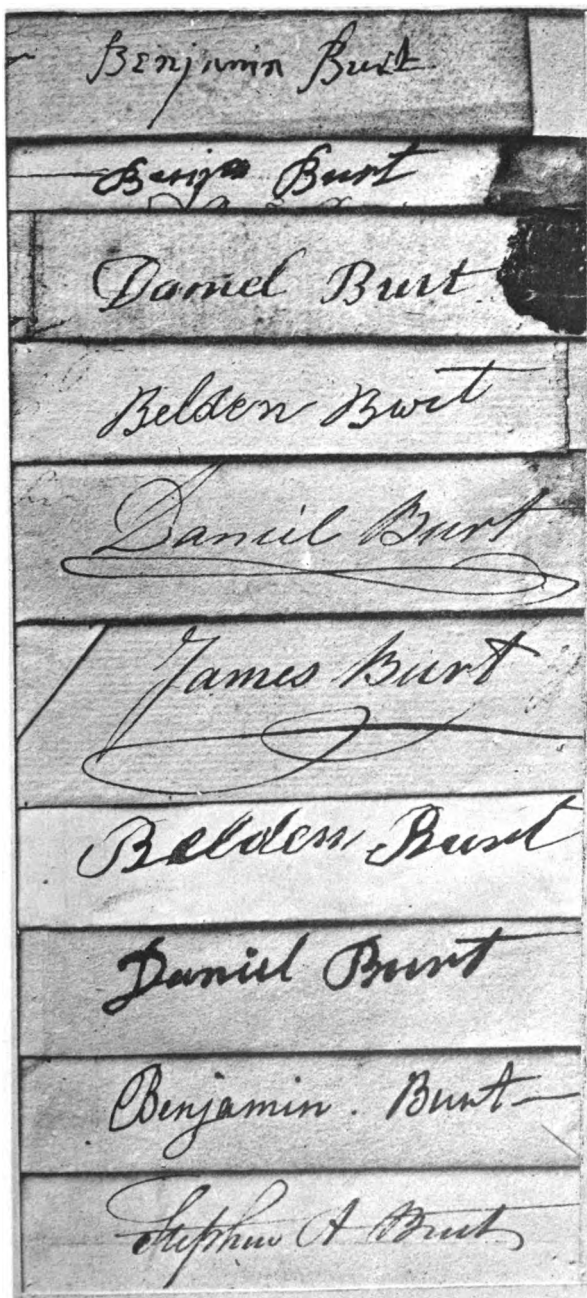 Benjamin Burt
Benja Burt
Daniel Burt
Belden Burt
Daniel Burt
James Burt
Belden Burt
Daniel Burt
Benjamin. Burt
Stephen A Burt